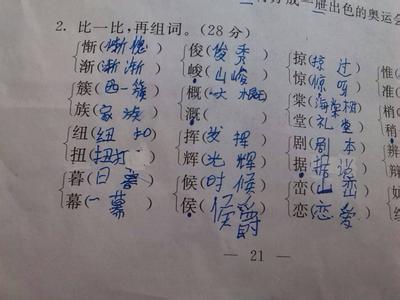 出色的奥运会
2. 比一比,再组词。(28 分)
惭(惭愧) 俊(俊秀) 掠(掠过) 惟(
渐(渐渐) 峻(山峻) 惊(惊呀) 准(
簇(西一簇) 概(大概) 棠(海棠树)
族(家族) 溉( ) 堂(礼堂)
纽(纽扣) 挥(发挥) 剧(剧本)
扭(扭打) 辉(光辉) 据(据说)
暮(日暮) 候(时候) 峦(山峦)
幕(一幕) 侯(侯爵) 恋(恋爱)
— 21 —